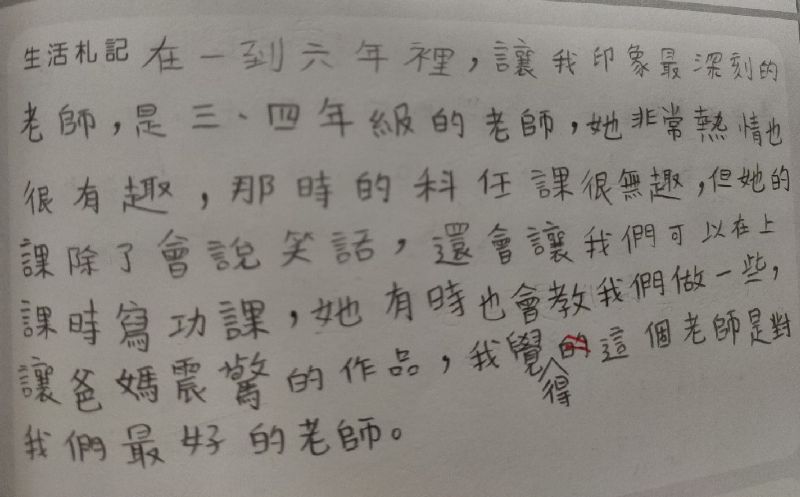 生活札記 在一到六年裡，讓我印象最深刻的
老師，是三、四年級的老師，她非常熱情也
很有趣，那時的科任課很無趣，但她的
課除了會說笑話，還會讓我們可以在上
課時寫功課，她有時也會教我們做一些，
讓爸媽震驚的作品，我覺得這個老師是對
我們最好的老師。